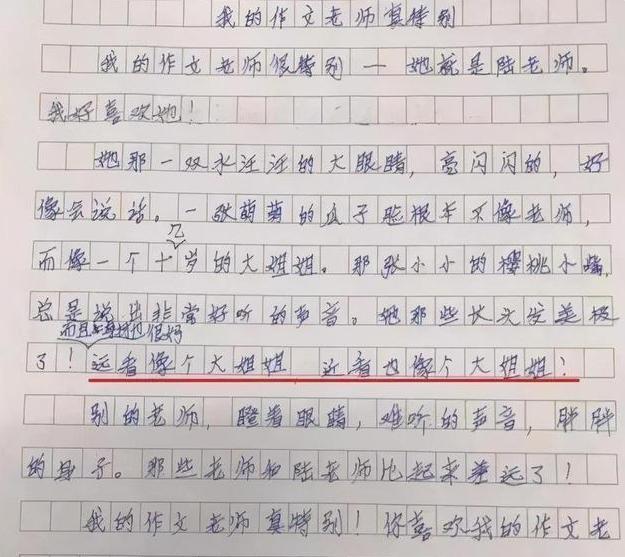 我的作文老师真特别
我的作文老师很特别—她就是陆老师。
我好喜欢她!
她那一双水汪汪的大眼睛,亮闪闪的,好
像会说话。一张萌萌的瓜子脸根本不像老师,
而像一个十几岁的大姐姐。那张小小的樱桃小嘴,
总是说出非常好听的声音。她那些长头发美极
而且身材也很好
了!远看像个大姐姐 近看也像个大姐姐!
别的老师,瞪着眼睛,难听的声音,胖胖
的身子。那些老师和陆老师比起来差远了!
我的作文老师真特别!你喜欢我的作文老